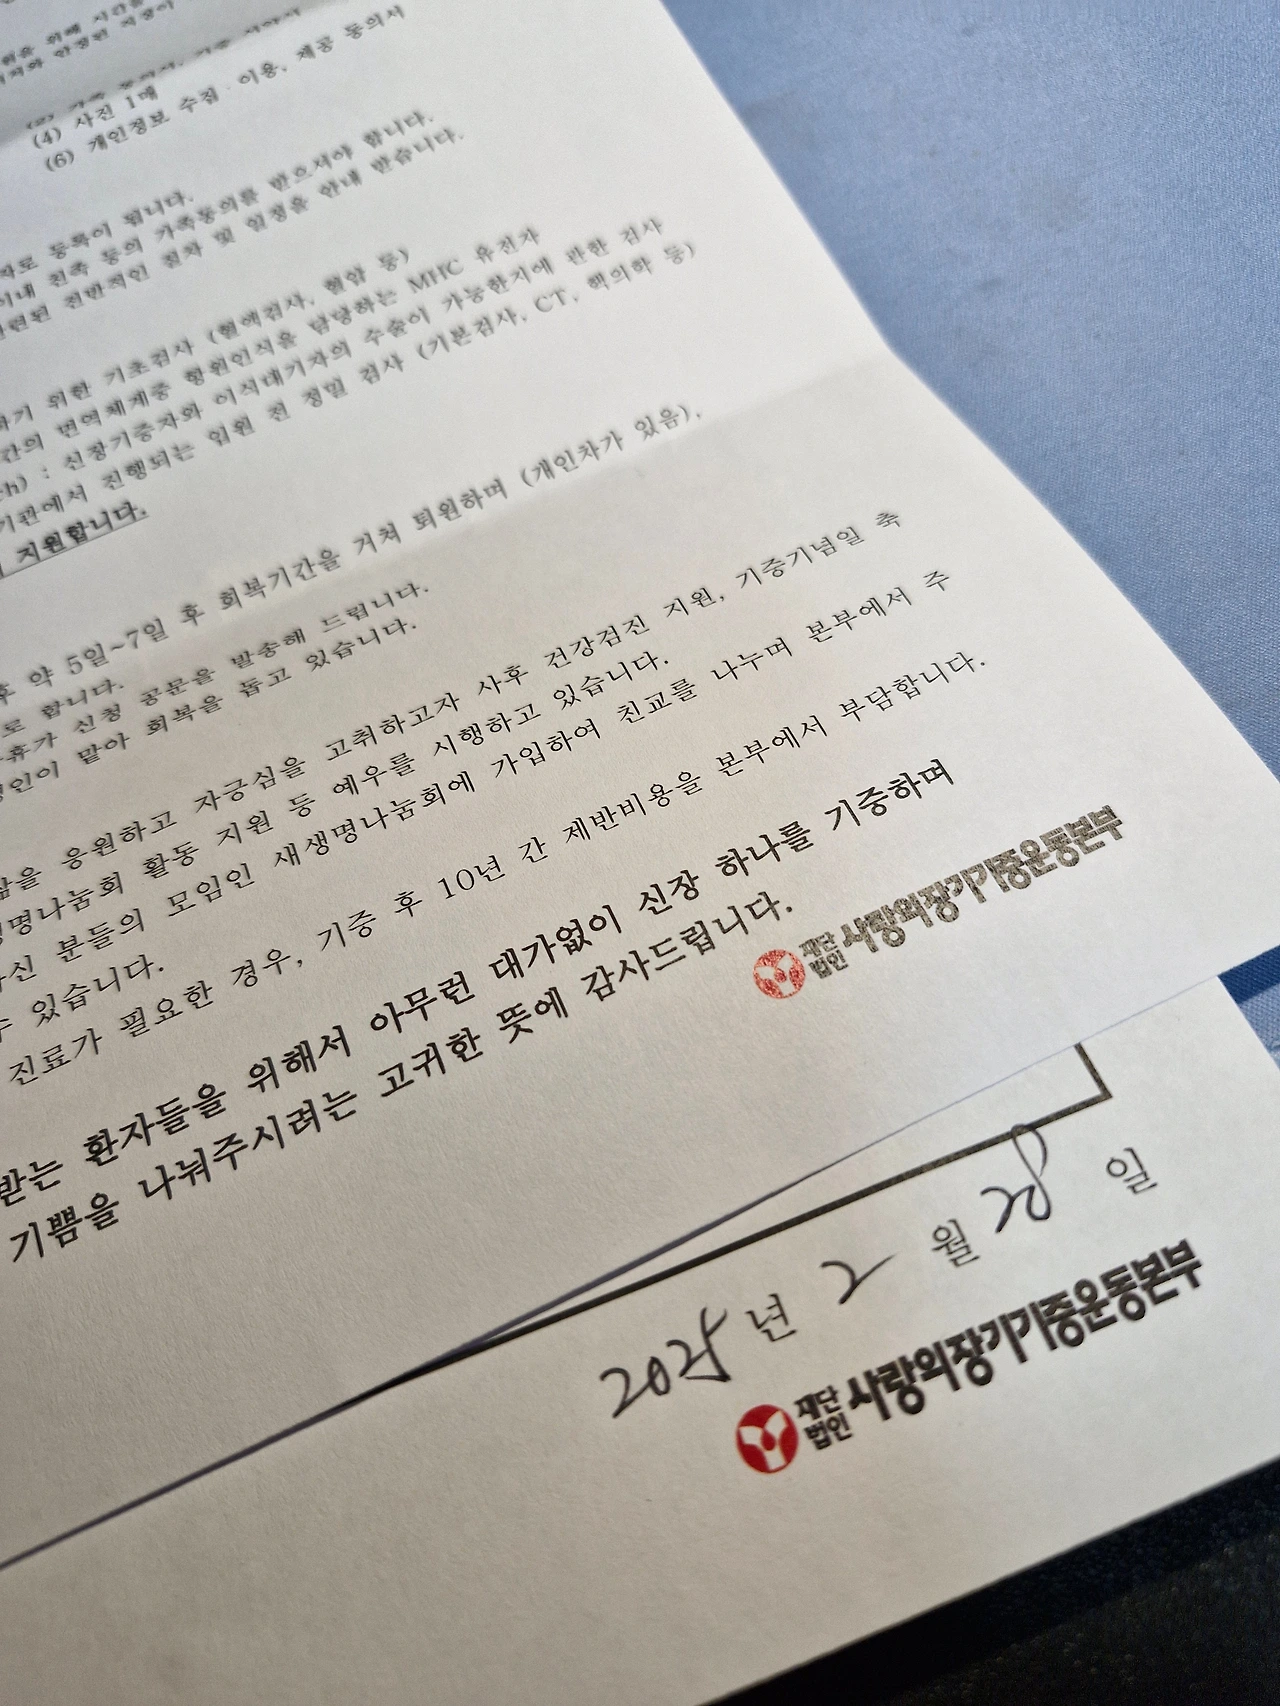 (4) 사진 1매
(6) 개인정보 수집·이용, 제공 동의서
자로 등록이 됩니다.
이내 친족 등의 가족동의를 받으셔야 합니다.
관련된 전반적인 절차 및 일정을 안내 받습니다.
하기 위한 기초검사 (혈액검사, 혈압 등)
간의 면역체계중 항원인식을 담당하는 MHC 유전자
ch) : 신장기증자와 이식대기자의 수술이 가능한지에 관한 검사
기관에서 진행되는 입원 전 정밀 검사 (기본검사, CT, 핵의학 등)
지원합니다.
후 약 5일~7일 후 회복기간을 거쳐 퇴원하며 (개인차가 있음),
로 합니다.
휴가 신청 공문을 발송해 드립니다.
인이 맡아 회복을 돕고 있습니다.
삶을 응원하고 자긍심을 고취하고자 사후 건강검진 지원, 기증기념일 축
생명나눔회 활동 지원 등 예우를 시행하고 있습니다.
하신 분들의 모임인 새생명나눔회에 가입하여 친교를 나누며 본부에서 주
수 있습니다.
진료가 필요한 경우, 기증 후 10년 간 제반비용을 본부에서 부담합니다.
받는 환자들을 위해서 아무런 대가없이 신장 하나를 기증하며
기쁨을 나눠주시려는 고귀한 뜻에 감사드립니다.
재단법인 사랑의장기기증운동본부
2025년 2월 28일
재단법인 사랑의장기기증운동본부